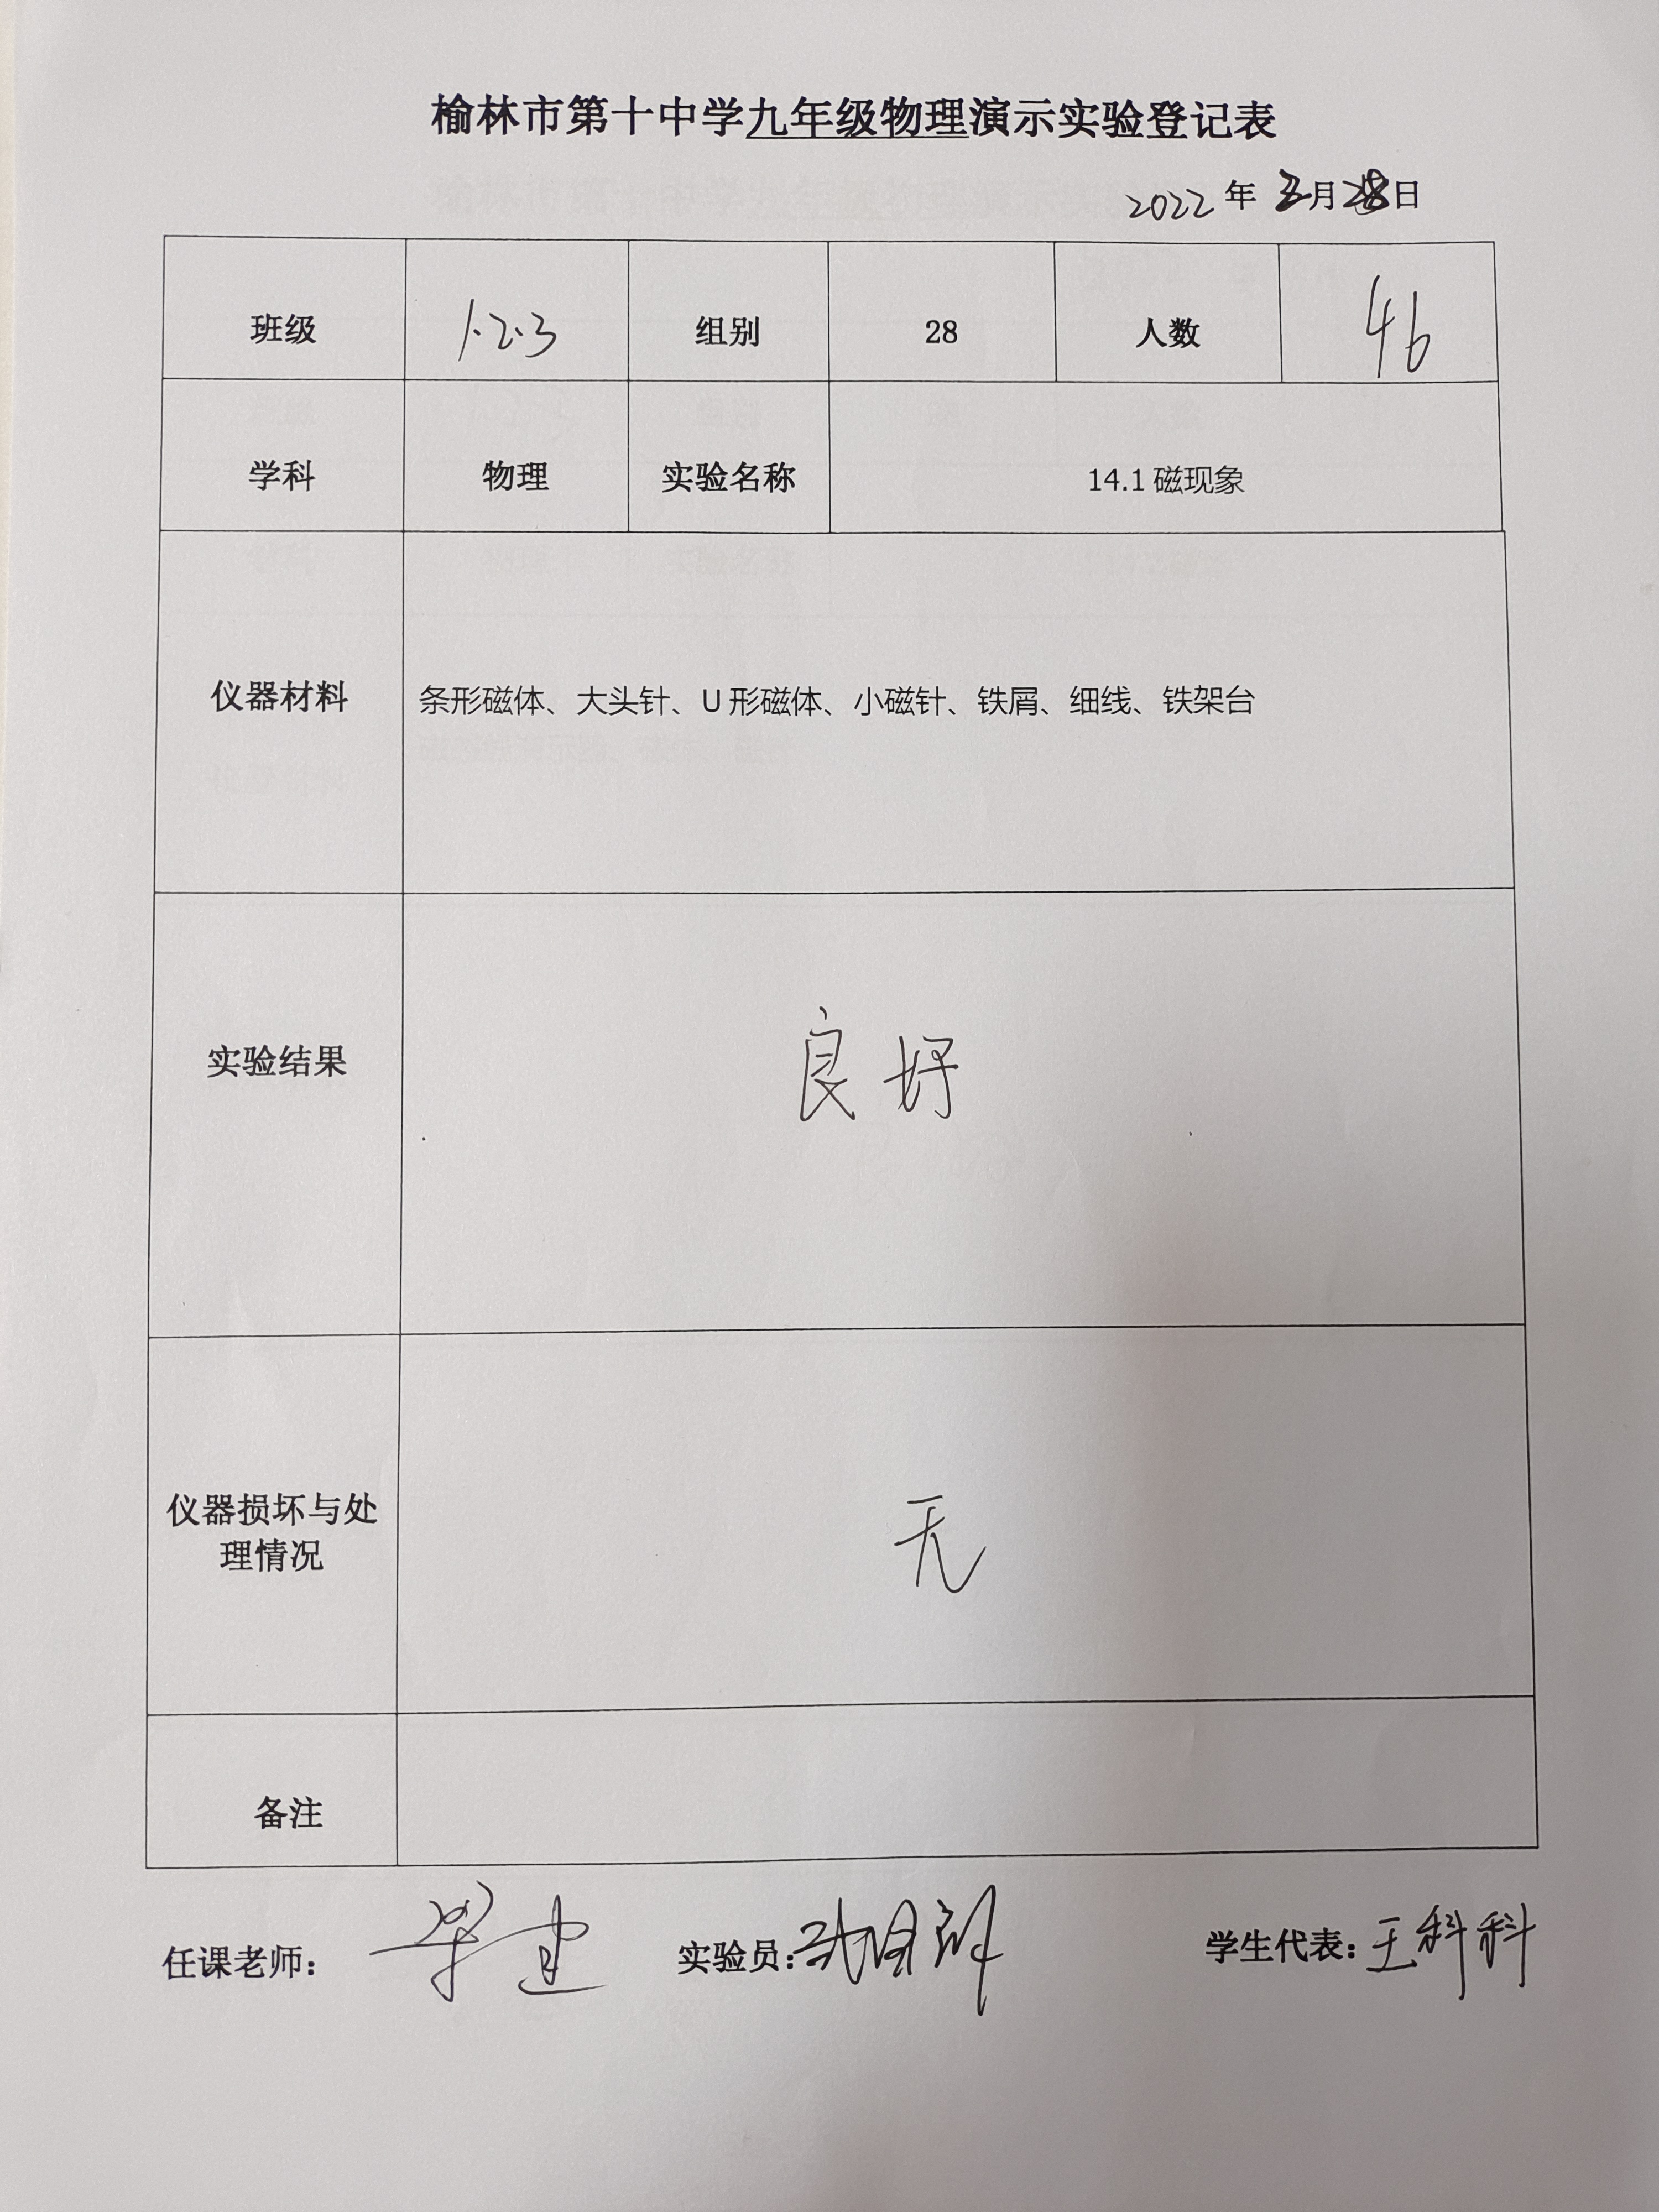 榆林市第十中学九年级物理演示实验登记表
2022年 月28日
班级 1·2·3 组别 28 人数 46
学科 物理 实验名称 14.1 磁现象
仪器材料 条形磁体、大头针、U 形磁体、小磁针、铁屑、细线、铁架台
实验结果 良好
仪器损坏与处
理情况
无
备注
任课老师： 实验员： 学生代表：王科科